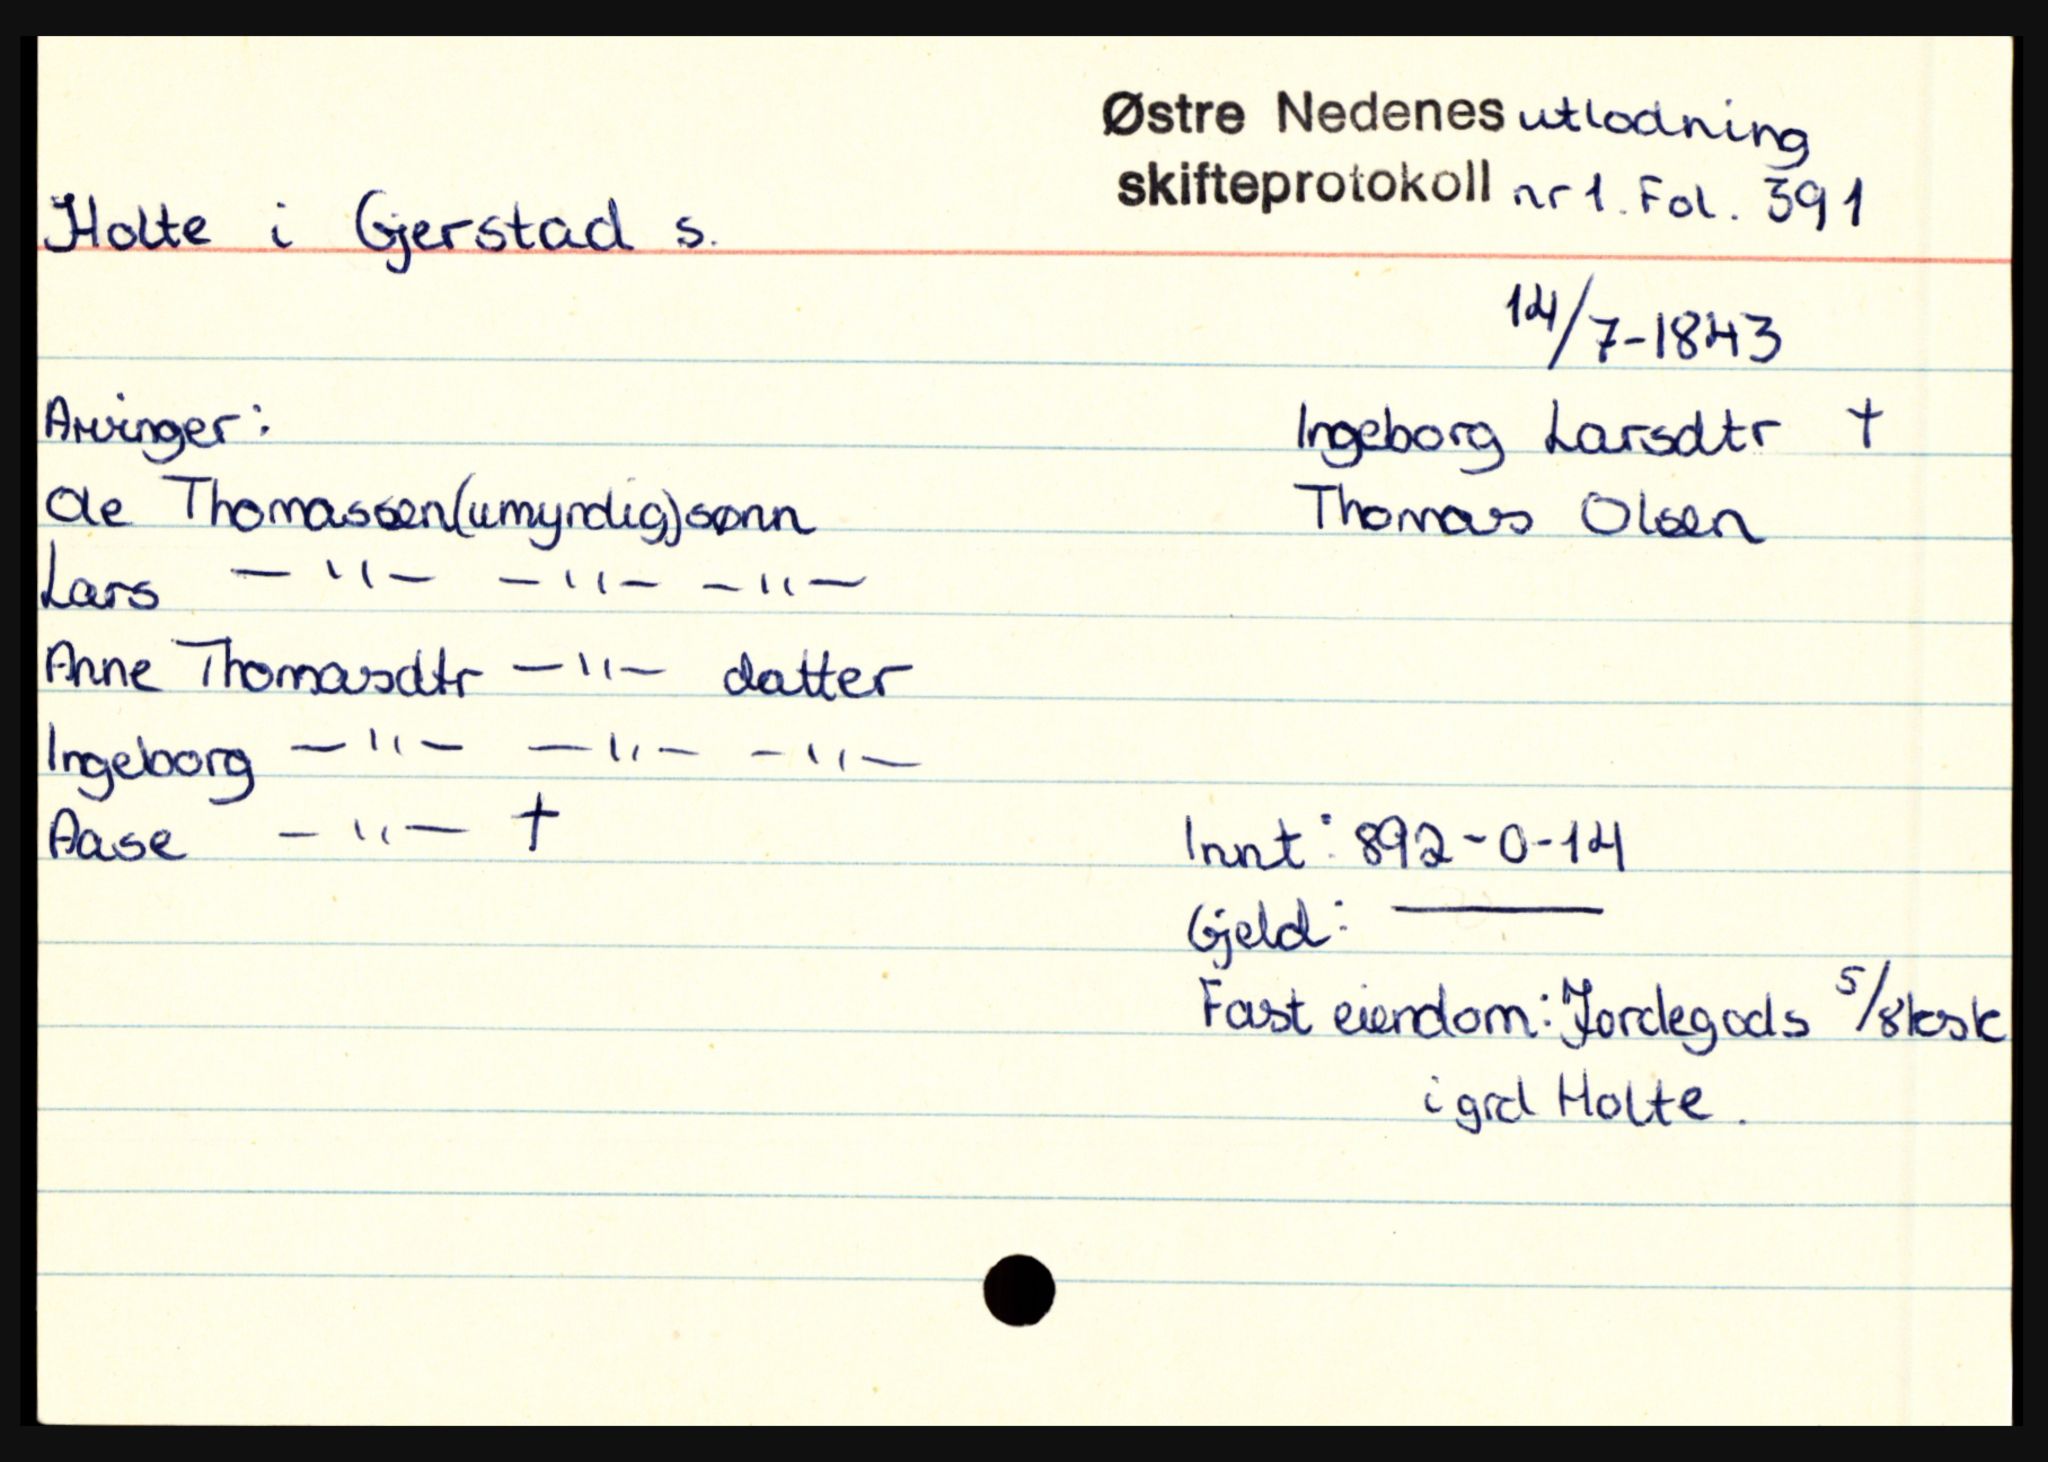 Østre Nedenes utlodning
skifteprotokoll nr 1. Fol. 391
Holte i Gjerstad s.
14/7-1843
Arvinger:
Ingeborg Larsdtr †
Ole Thomassen (umyndig) sønn
Thomas Olsen
Lars —"— —"— —"—
Anne Thomasdtr —"— datter
Ingeborg —"— —"— —"—
Aase —"— †
Innt: 892-0-14
Gjeld: ———
Fast eiendom: Jordegods 5/8
i grd Holte.